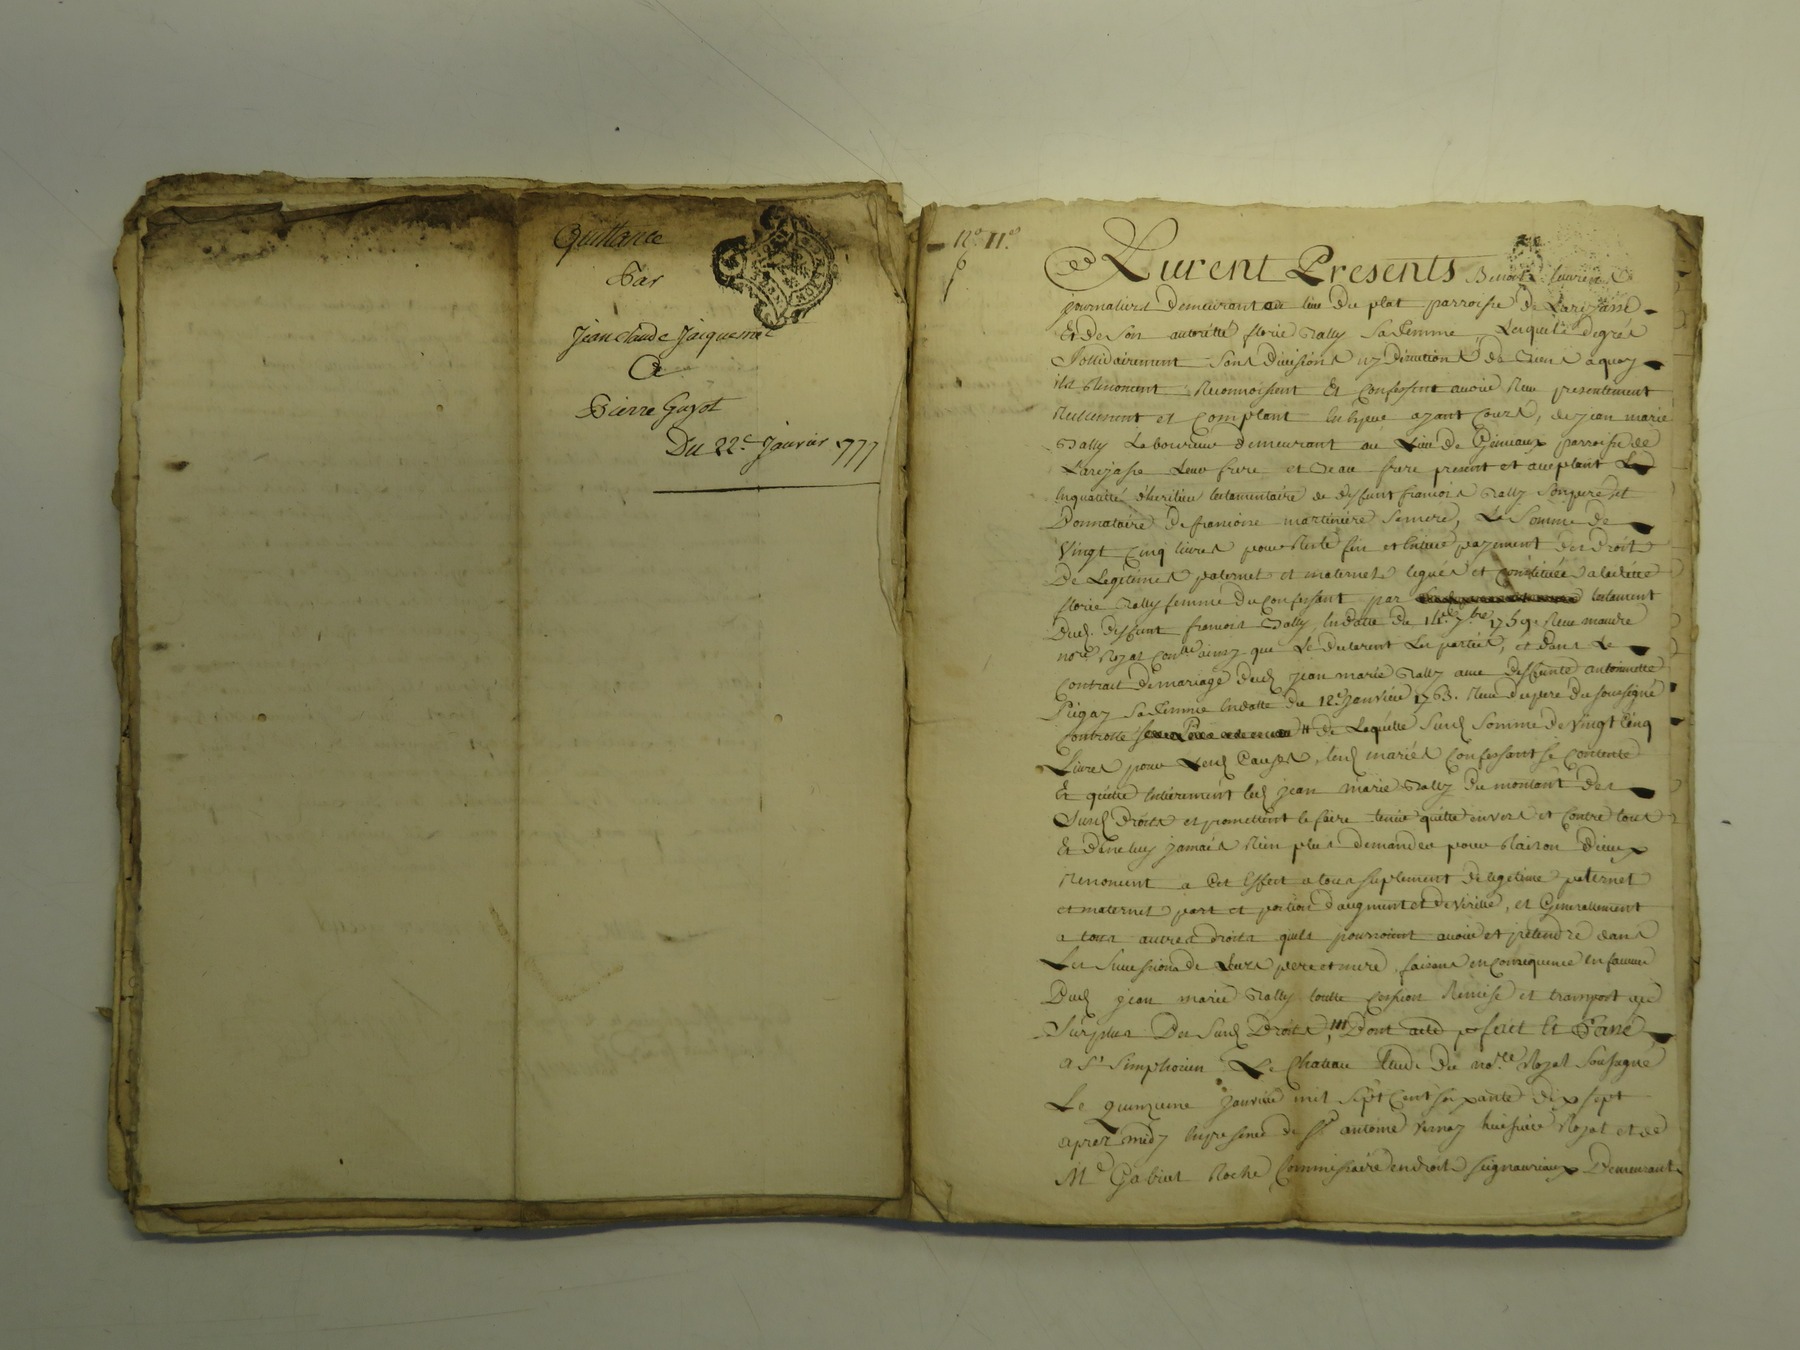 Quittance
Par
Jean Claude Jacquemot
A
Pierre Guyot
Du 22e Janvier 1777
No 11e
Furent Presents Benoit
journalier demeurant au lieu du plat parroisse de Larajasse
Et de son autoritté florie Rally sa femme, lesquels de grés
Sollidairement sans division ny discution de biens a quoy
ils Renoncent Reconnoissent Et Confessent avoir Reçu presentement
Reellement et Comptant En Espece ayant Cours, de jean marie
Rally Laboureur demeurant au Lieu de parroisse de
Larajasse Leur frere et beau frere present et acceptant
En qualité d'heritier testamentaire de deffunt francois Rally son pere et
Donnataire de francoise martiniere sa mere, La Somme de
Vingt Cinq livres pour Reste fin et Entier payement des droits
De Legitimes paternel et maternels legués et constitués a laditte
florie Rally femme du Confessant par testament
Dud. deffunt francois Rally En datte du 14e 7bre 1759. Reçu
nore Royal ainsy que Le declarent Les parties, et dans Le
Contract de mariage dud jean marie Rally avec deffunte antoinette
sa femme En datte du 12e Janvier 1763. Reçu du pere du sousigné
Controllé de Laquelle Susd Somme de Vingt Cinq
Livres pour Lesd Causes, lesd mariés Confessant se Contente
Et quitte Entierement led jean marie Rally du montant des
Susd Droits et promettent le faire tenir quitte envers et Contre tous
Et de ne luy jamais Rien plus demander pour Raison d'iceux
Renoncent a Cet Effect a tous suplement de legitime paternel
et maternel part et portion d'augment et de virille, et Generallement
a tous autres droits quils pourroient avoir et pretendre dans
Les Successions de Leurs pere et mere, faisant en consequence En faveur
Dud jean marie Rally toutte Cession Remise et transport du
Surplus Des Susd Droits, Dont acte fait Et Passé
a St Simphorien Le Chateau Etude du nore Royal Sousigné
Le quinzieme Janvier mil Sept Cent soixante dix sept
apres midy En presence de Sr antoine huissier Royal et de
Me Gabriel Roche Commissaire en droits seigneuriaux Demeurants